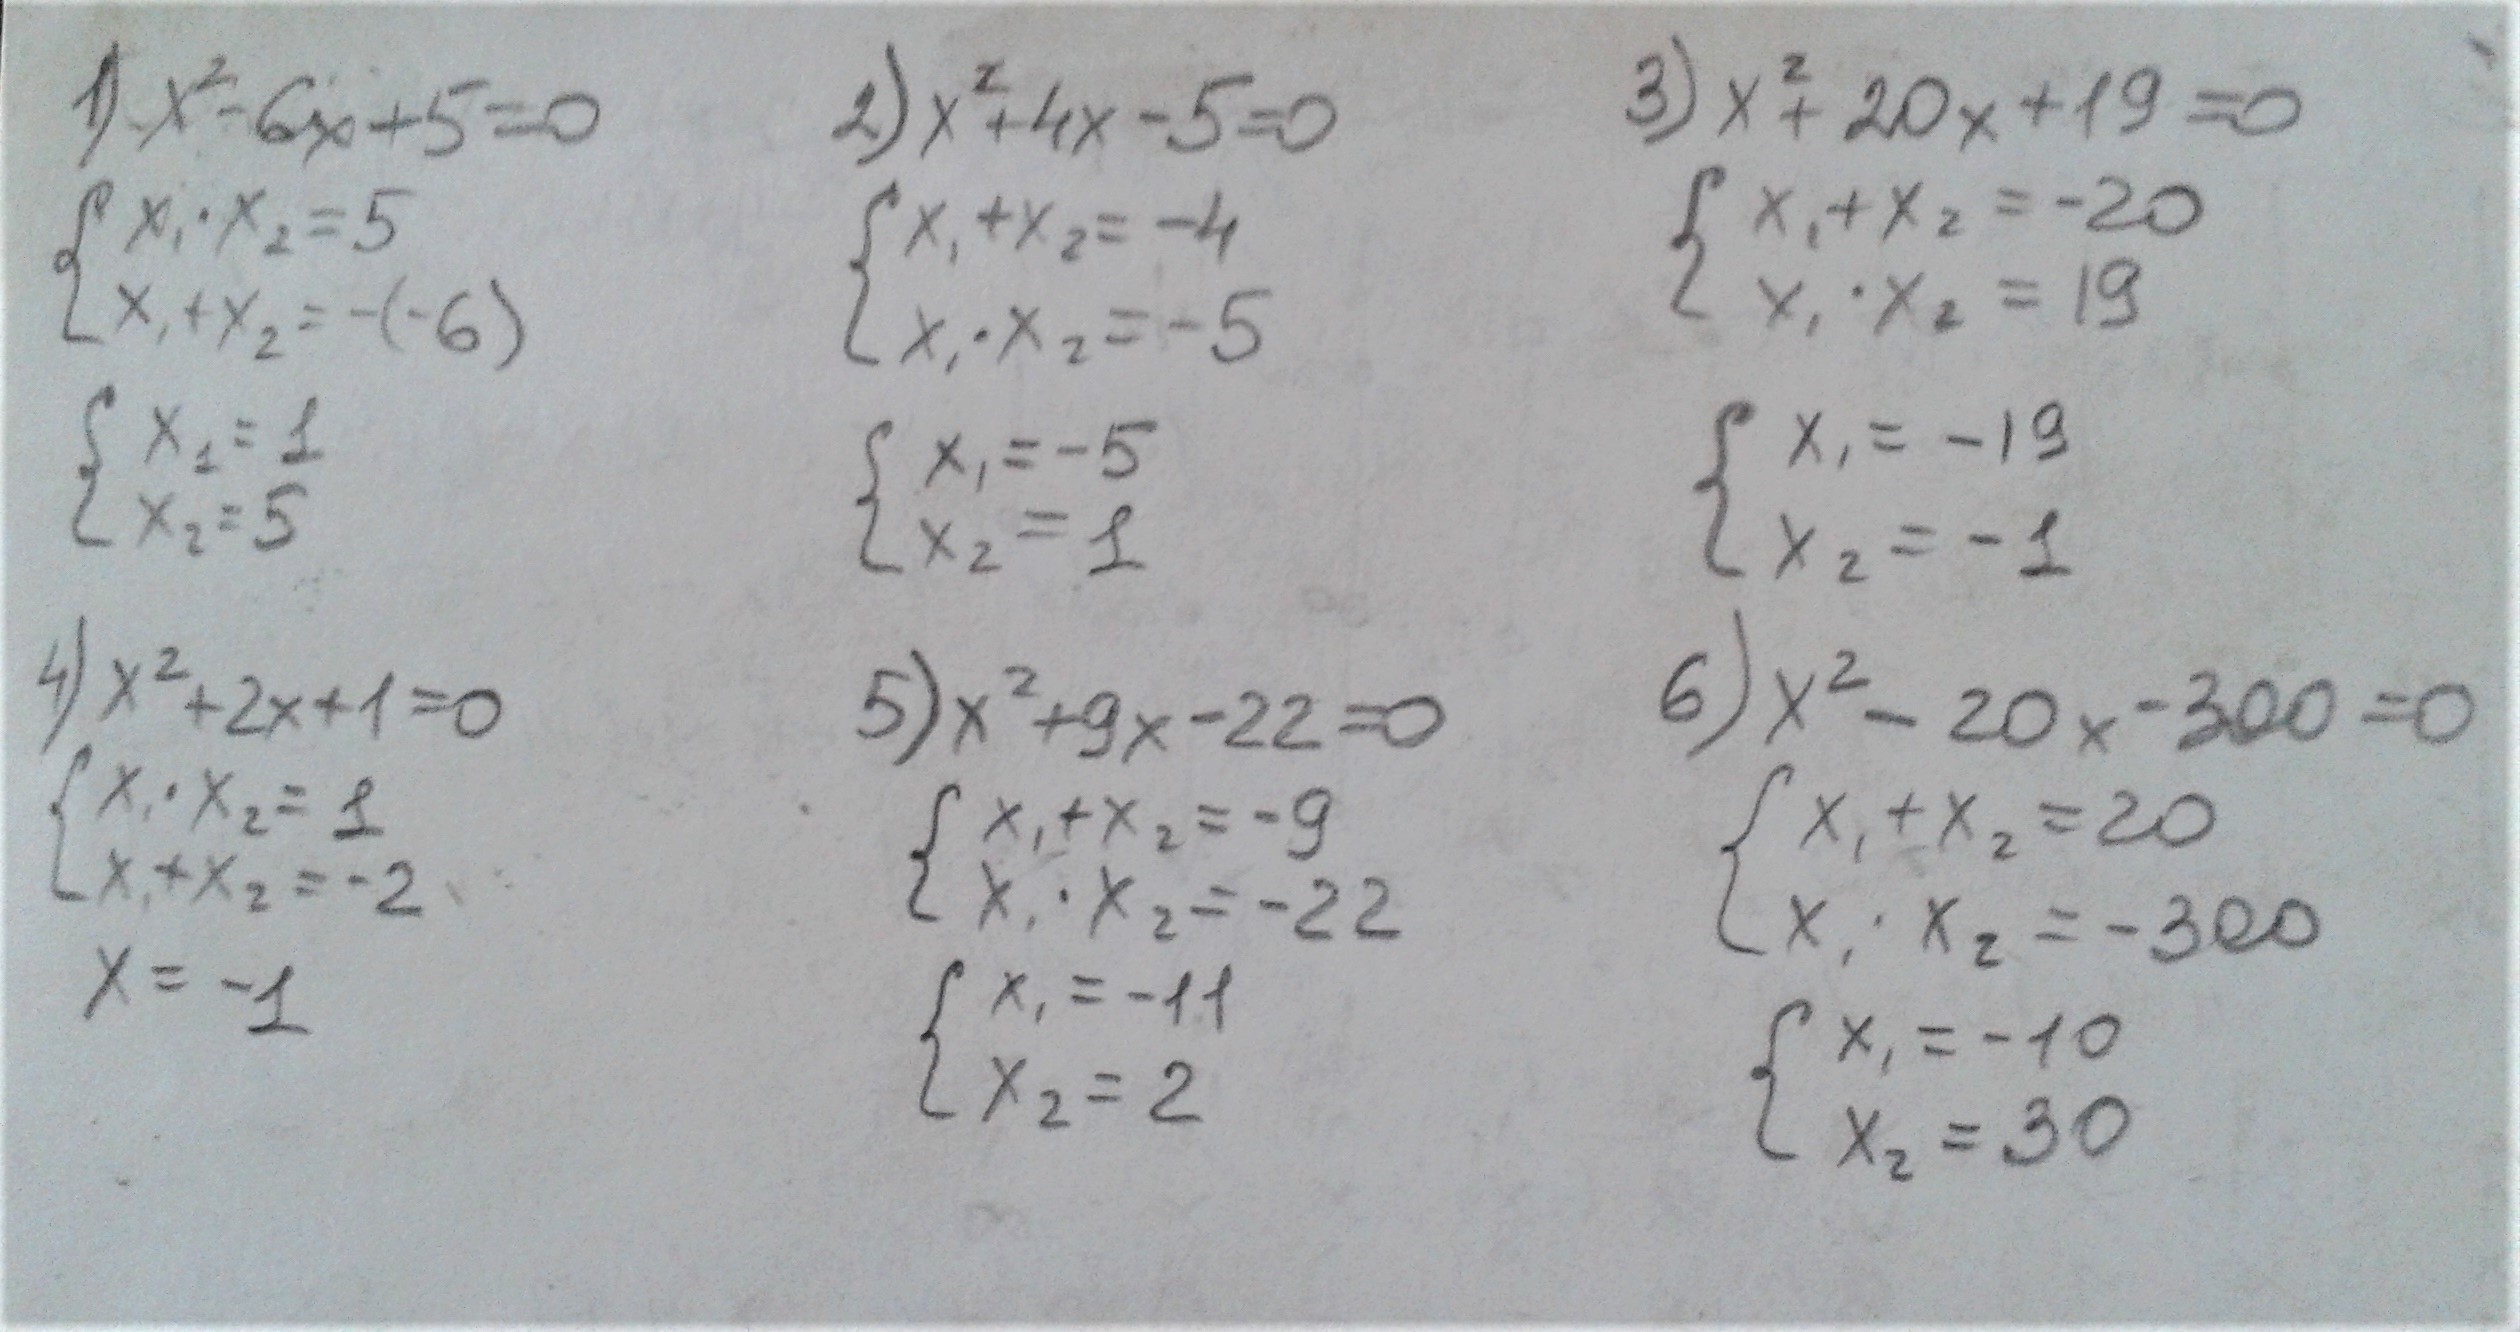 1) x²-6x+5=0
{ x₁·x₂=5
x₁+x₂=-(-6)
{ x₁=1
x₂=5
2) x²+4x-5=0
{ x₁+x₂=-4
x₁·x₂=-5
{ x₁=-5
x₂=1
3) x²+20x+19=0
{ x₁+x₂=-20
x₁·x₂=19
{ x₁=-19
x₂=-1
4) x²+2x+1=0
{ x₁·x₂=1
x₁+x₂=-2
x=-1
5) x²+9x-22=0
{ x₁+x₂=-9
x₁·x₂=-22
{ x₁=-11
x₂=2
6) x²-20x-300=0
{ x₁+x₂=20
x₁·x₂=-300
{ x₁=-10
x₂=30